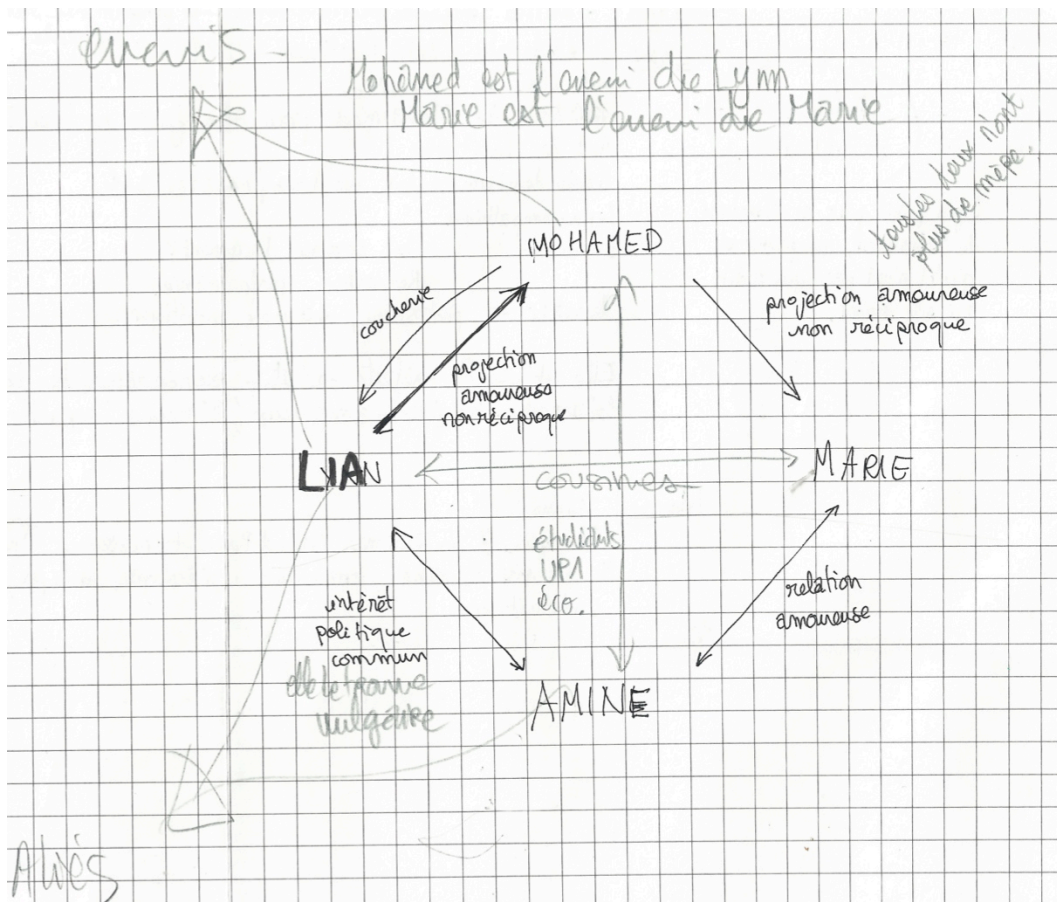 enemis -
Mohamed est l'enemi de Lynn
Marie est l'enemi de Marie
toustes deux n'ont
plus de mère.
MOHAMED
coucherie
projection amoureuse
non réciproque
projection
amoureuse
non réciproque
LIAN
MARIE
cousines
étudiants
UP1
éco.
intérêt
politique
commun
elle le trouve
vulgaire
relation
amoureuse
AMINE
Alliés